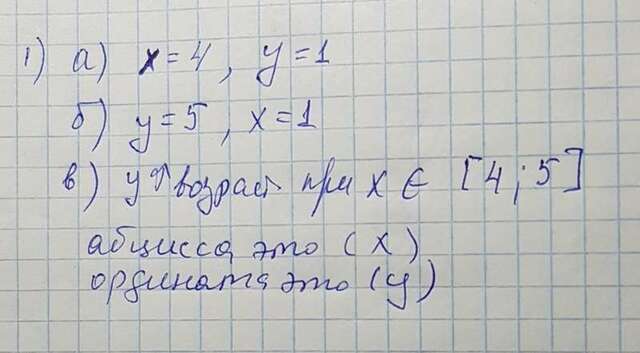 1) а) x=4, y=1
б) y=5, x=1
в) y↑ возраст при x ∈ [4;5]
абцисса это (x)
ордината это (y)